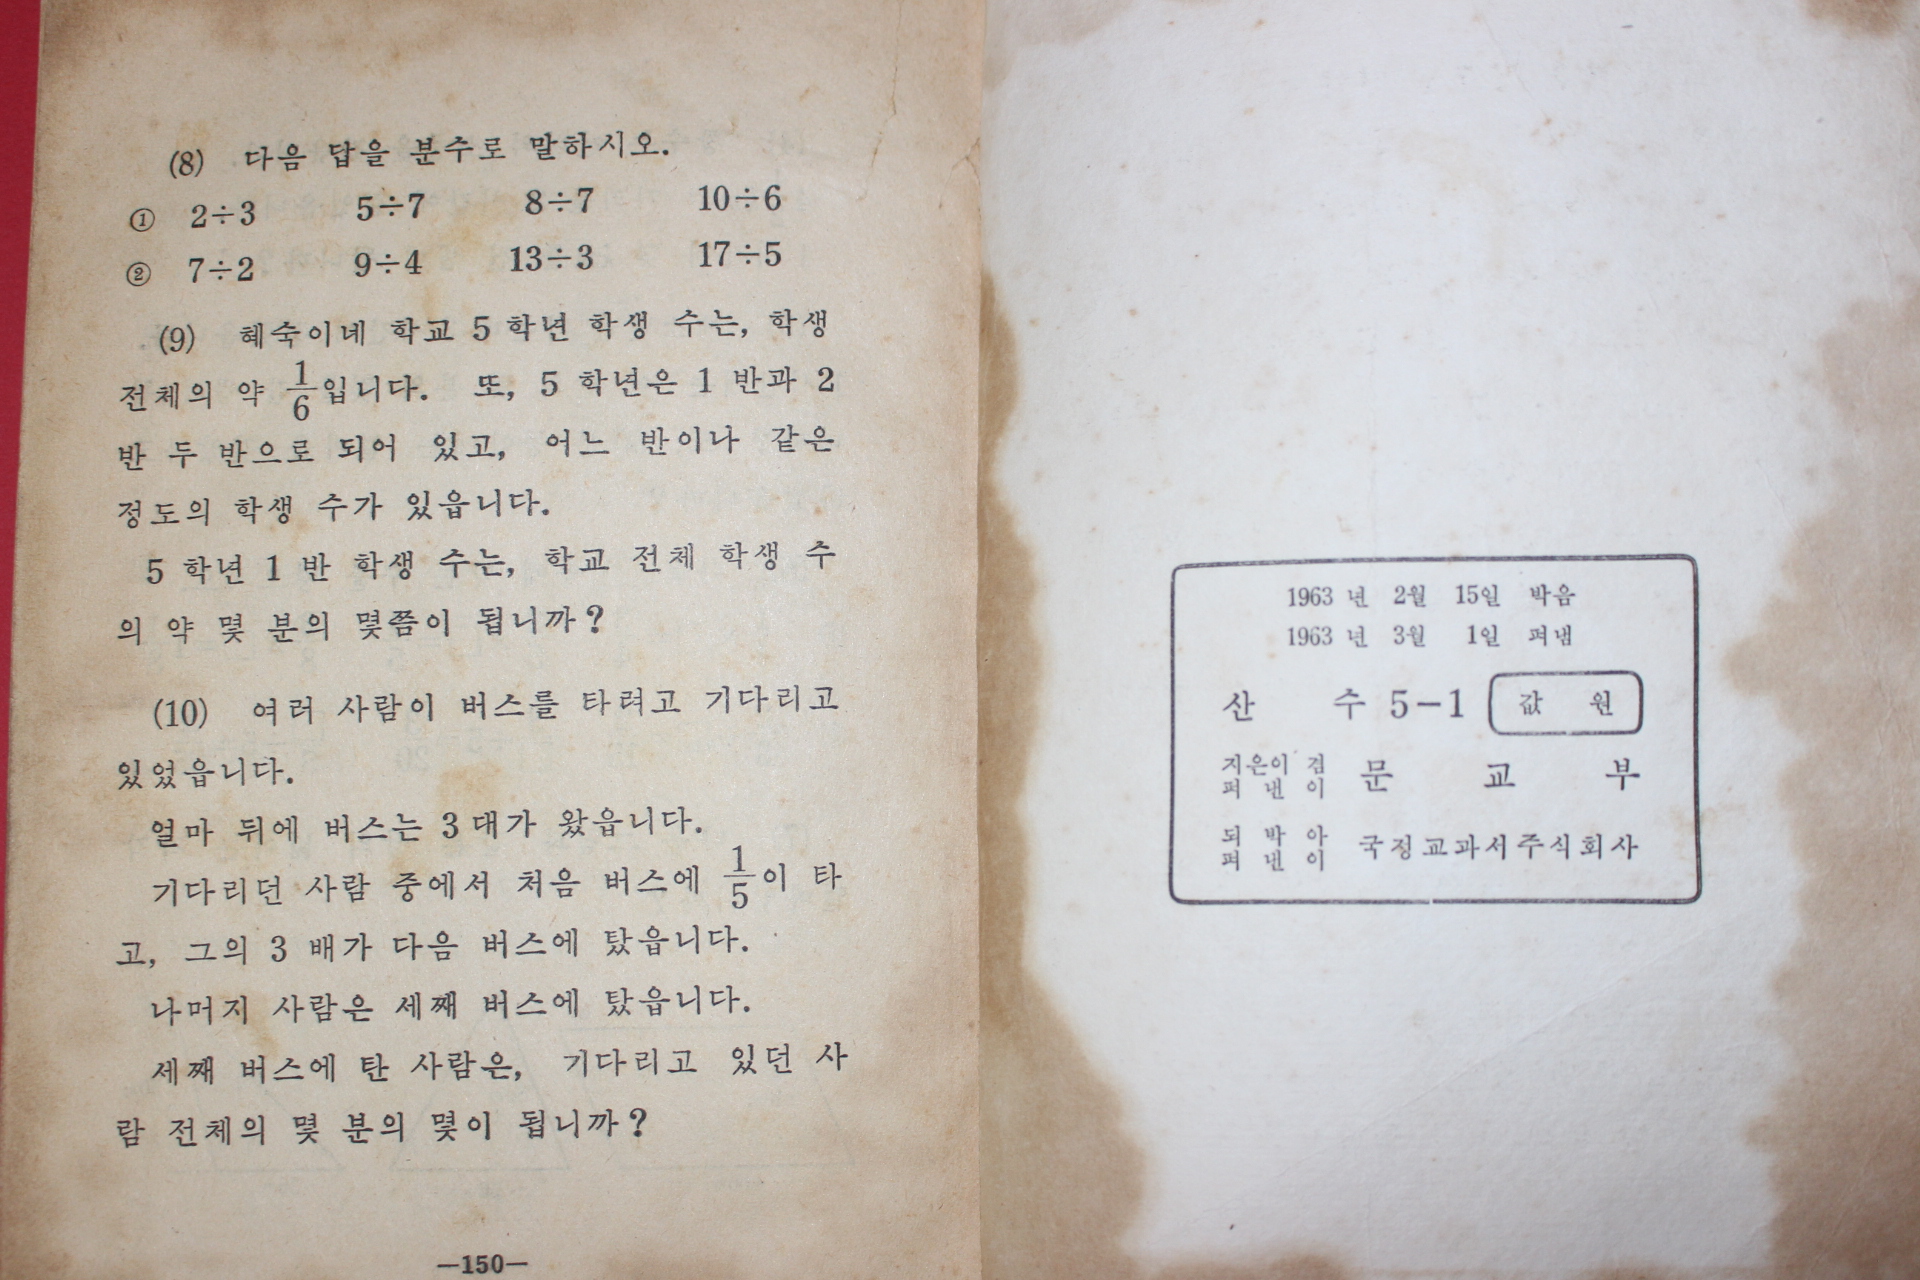 (8) 다음 답을 분수로 말하시오.
① 2÷3 5÷7 8÷7 10÷6
② 7÷2 9÷4 13÷3 17÷5
(9) 혜숙이네 학교 5 학년 학생 수는, 학생
전체의 약 1/6입니다. 또, 5 학년은 1 반과 2
반 두 반으로 되어 있고, 어느 반이나 같은
정도의 학생 수가 있읍니다.
5 학년 1 반 학생 수는, 학교 전체 학생 수
의 약 몇 분의 몇쯤이 됩니까?
(10) 여러 사람이 버스를 타려고 기다리고
있었읍니다.
얼마 뒤에 버스는 3 대가 왔읍니다.
기다리던 사람 중에서 처음 버스에 1/5이 타
고, 그의 3 배가 다음 버스에 탔읍니다.
나머지 사람은 세째 버스에 탔읍니다.
세째 버스에 탄 사람은, 기다리고 있던 사
람 전체의 몇 분의 몇이 됩니까?
—150—
1963 년 2월 15일 박음
1963 년 3월 1일 펴냄
산 수 5-1 값 원
지은이 겸
펴 낸 이 문 교 부
되 박 아
펴 낸 이 국정교과서주식회사